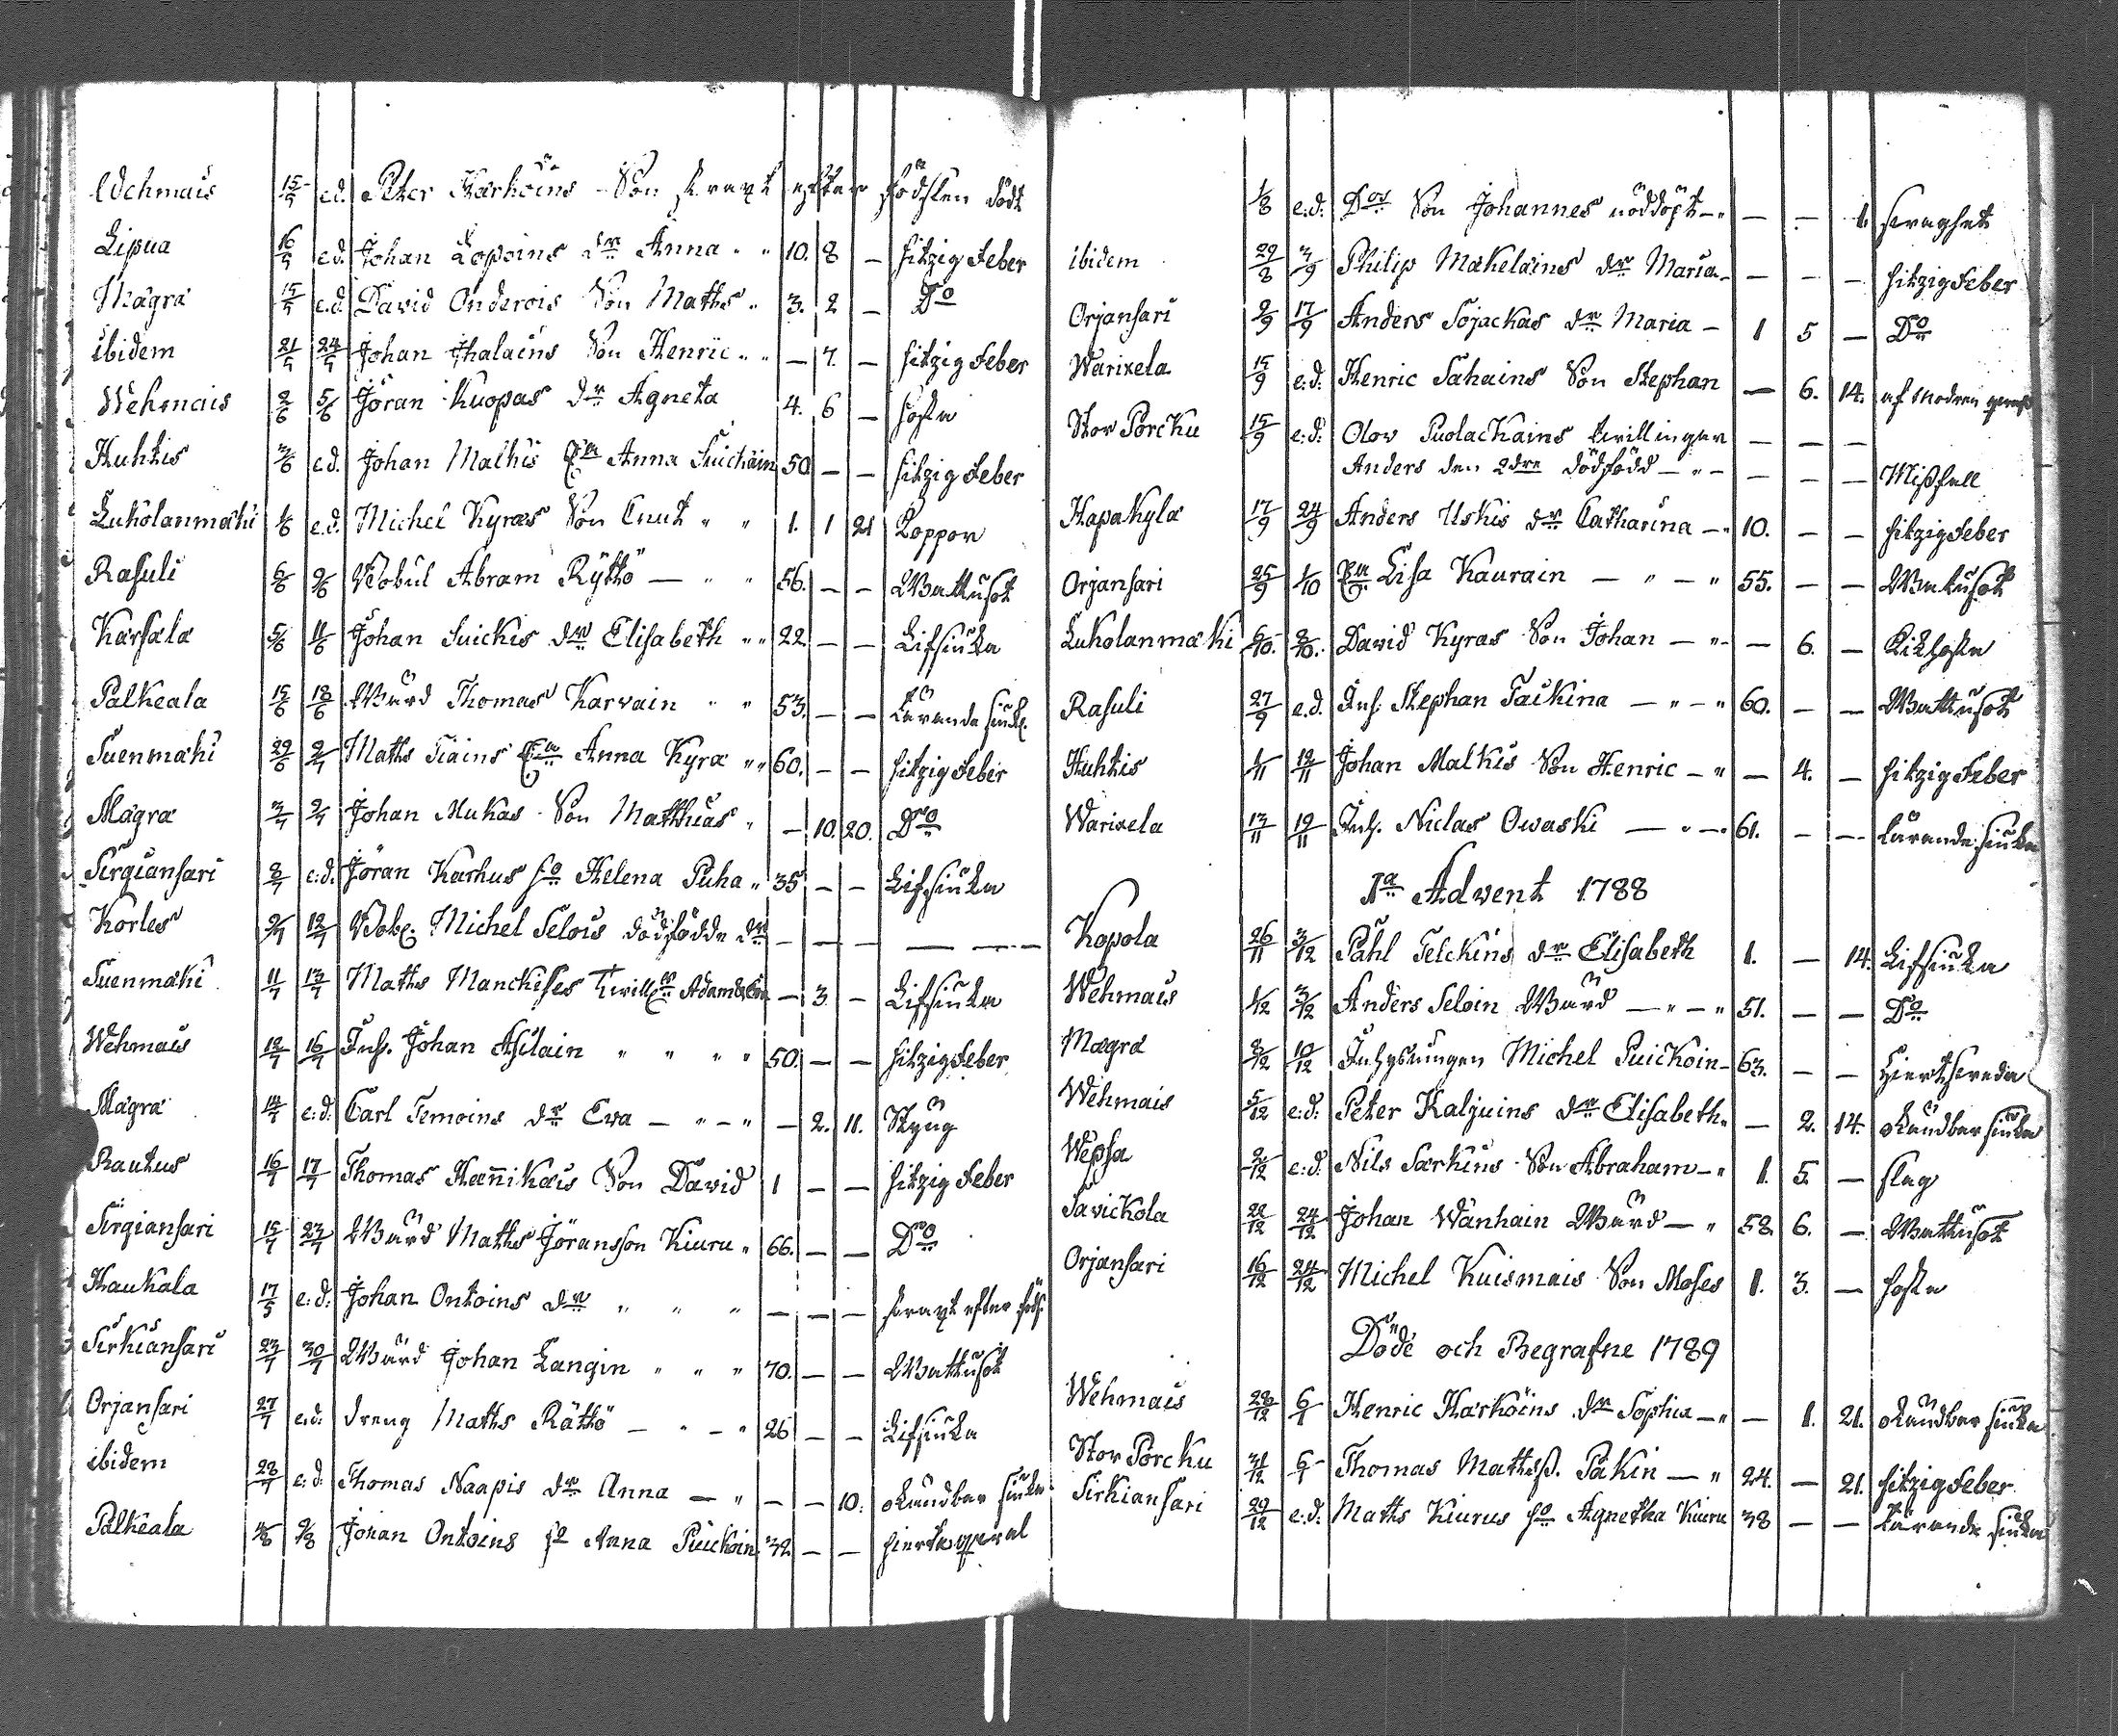 Wehmais 15/5 e.d. Peter Karhoins Son straxt efter födslen död
Lipua 16/5 e.d. Johan Lopoins dr Anna " " 10. 8 — hitzig Feber
Magra 15/5 e.d. David Onderois Son Maths " 3. 2 — Do
ibidem 21/5 24/5 Johan Ihalains Son Henric " " — 7. — hitzig Feber
Wehmais 2/6 5/6 Jöran Kuopas dr Agneta 4. 6 — hosta
Huhtis 3/6 e.d. Johan Malkis Ea Anna Suickain 50 — — hitzig Feber
Lukolanmäki 1/6 e.d. Michel Kyras Son Cnut " " 1. 1 21 Koppor
Rasuli 6/6 9/6 Nobul Abram Ryttö — " " 56. — — Wattusot
Karsala 5/6 11/6 Johan Suickis dr Elisabeth " " 22 — — Lifsiuka
Palkeala 15/6 18/6 Wärd Thomas Karvain " " 53. — — tärande siuk.
Suenmäki 29/6 2/7 Maths Tiains Ea Anna Kyra " " 60. — — hitzig Feber
Magra 3/7 2/7 Johan Mukas Son Matthias " — 10. 20. Do
Sirgiansari 8/7 e:d: Jöran Karhus ho Helena Puha " 35 — — Lifsiuka
Korles 9/7 12/7 Michel Selois dödfödde dr — — — — —
Suenmäki 11/7 13/7 Maths Manckises Twill. Adam & — 3 — Lifsiuka
Wehmais 12/7 16/7 Inh. Johan Asilain " " " " 50. — — hitzig Feber
Magra 14/7 e:d: Carl Temoins dr Eva — " — " — 2. 11. Styng
Rautus 16/7 17/7 Thomas Hañikais Son David 1 — — hitzig Feber
Sirgiansari 15/7 23/7 Wärd Maths Jöransson Kiuru " 66. — — Do
Haukala 17/5 e:d: Johan Ontoins dr " " " — — — straxt efter föds.
Sirkiansari 23/7 30/7 Wärd Johan Langin " " " 70. — — Wattusot
Orjansari 27/7 e:d: dreng Maths Räthö — " — " 26 — — Lifsiuka
ibidem 28/7 e:d: Thomas Naapis dr Anna — " — — 10. okundbar siuka
Palkeala 4/8 9/8 Johan Ontoins ho Anna Puickoin 32 — — hierteqval
1/8 e:d: Dos Son Johannes nöddöpt — " — — 1. swaghet
ibidem 29/8 3/9 Philip Makelains dr Maria — — — — hitzig Feber
Orjansari 9/9 17/9 Anders Sojackas dr Maria — 1 5 — Do
Warixela 15/9 e:d: Henric Sahains Son Stephan — 6. 14. af Modren
Stor Porcku 15/9 e:d: Olov Puolackains twillingar — — —
Anders den 2dre dödfödd — " — — — — Mißfall
Hapakylä 17/9 24/9 Anders Uskis dr Catharina — " 10. — — hitzig Feber
Orjansari 25/9 1/10 Ea Lisa Kaurain — " — " 55. — — Wattusot
Lukolanmäki 6/10. 9/10. David Kyras Son Johan — " — — 6. — Kikhosta
Rasuli 27/9 e.d. Inh. Stephan Tackina — " — " 60. — — Wattusot
Huhtis 1/11 12/11 Johan Malkis Son Henric — " — 4. — hitzig Feber
Warixela 13/11 19/11 Inh. Niclas Owaski — " — " 61. — — tärande siuka
1a Advent 1788
Kopola 26/11 3/12 Påhl Telckins dr Elisabeth 1. — 14. Lifsiuka
Wehmais 1/12 3/12 Anders Seloin Wärd — " — " 51. — — Do
Magra 8/12 10/12 Inhysungen Michel Puickoin — 63. — —
Wehmais 5/12 e:d: Peter Kaljuins dr Elisabeth " — 2. 14. okundbar siuka
Wepsa 2/12 e:d: Nils Sarkins Son Abraham — " 1. 5. — slag
Savickola 22/12 24/12 Johan Wanhain Wärd — " 58. 6. — Wattusot
Orjansari 16/12 24/12 Michel Kuismais Son Moses 1. 3. — hosta
Döde och Begrafne 1789
Wehmais 28/12 6/1 Henric Karhoins dr Sophia — " — 1. 21. okundbar siuka
Stor Porcku 31/12 6/1 Thomas Mathsß. Päkin — " 24. — 21. hitzig Feber
Sirkiansari 29/12 e:d: Maths Kiurus ho Agnetha Kiuru 38 — — tärande siuka